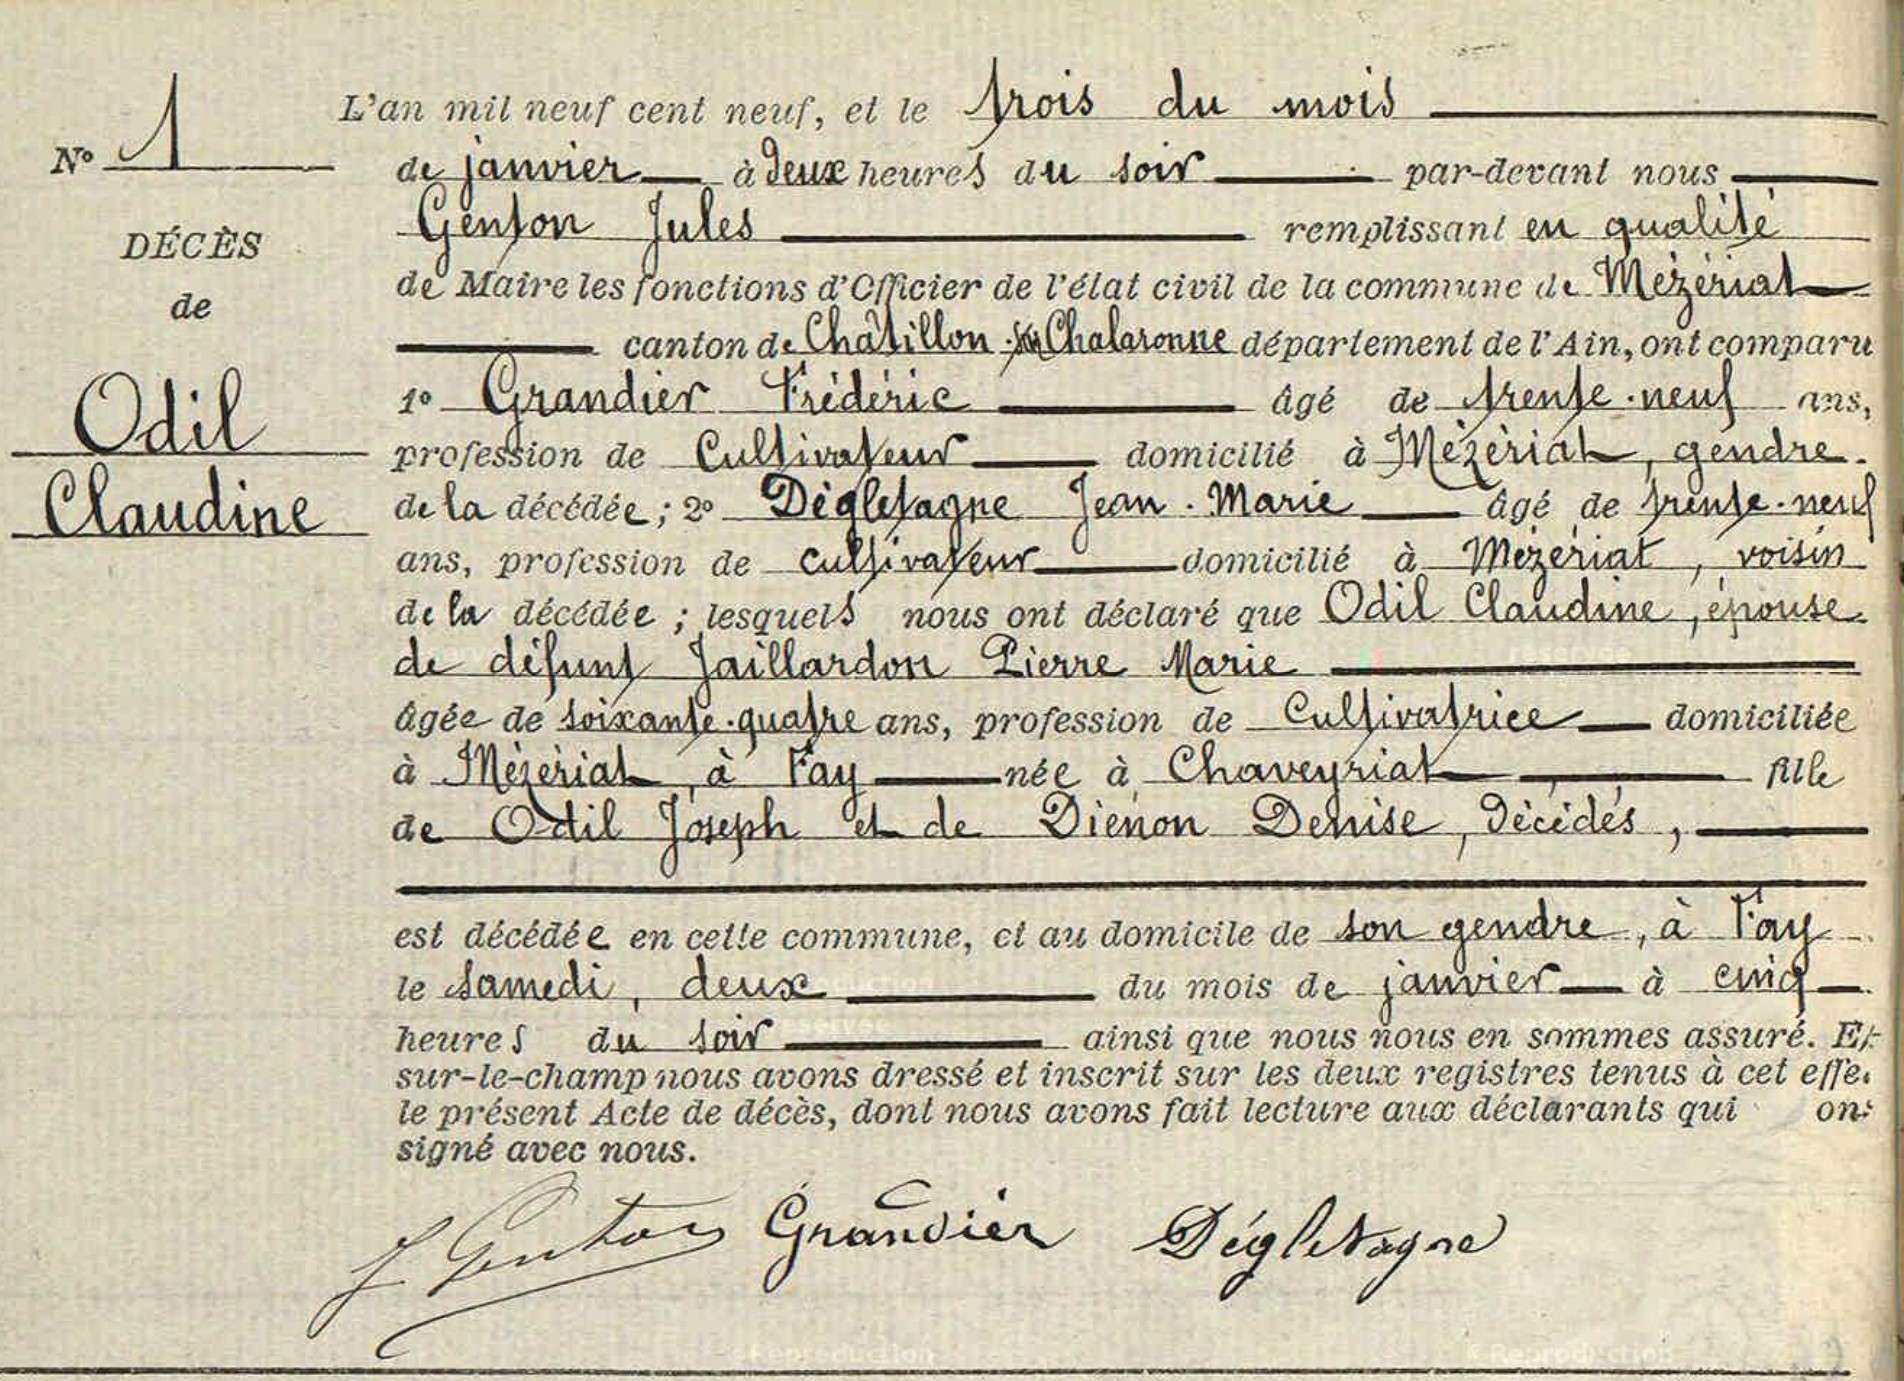 L'an mil neuf cent neuf, et le trois du mois
N° 1
de janvier à deux heures du soir par-devant nous
Genton Jules remplissant en qualité
DÉCÈS
de Maire les fonctions d'Officier de l'état civil de la commune de Mézériat
de
canton de Châtillon-sur-Chalaronne département de l'Ain, ont comparu
Odil
1° Grandier Frédéric âgé de trente-neuf ans,
profession de Cultivateur domicilié à Mézériat, gendre
Claudine
de la décédée; 2° Dégletagne Jean-Marie âgé de trente-neuf
ans, profession de cultivateur domicilié à Mézériat, voisin
de la décédée; lesquels nous ont déclaré que Odil Claudine, épouse
de défunt Jaillardon Pierre Marie
âgée de soixante-quatre ans, profession de Cultivatrice domiciliée
à Mézériat, à Fay née à Chaveyriat, fille
de Odil Joseph et de Diénon Denise, décédés,
est décédée en cette commune, et au domicile de son gendre, à Fay
le samedi, deux du mois de janvier à cinq
heures du soir ainsi que nous nous en sommes assuré. Et
sur-le-champ nous avons dressé et inscrit sur les deux registres tenus à cet effe
le présent Acte de décès, dont nous avons fait lecture aux déclarants qui on
signé avec nous.
J Genton Grandier Dégletagne
Reproduction Reproduction